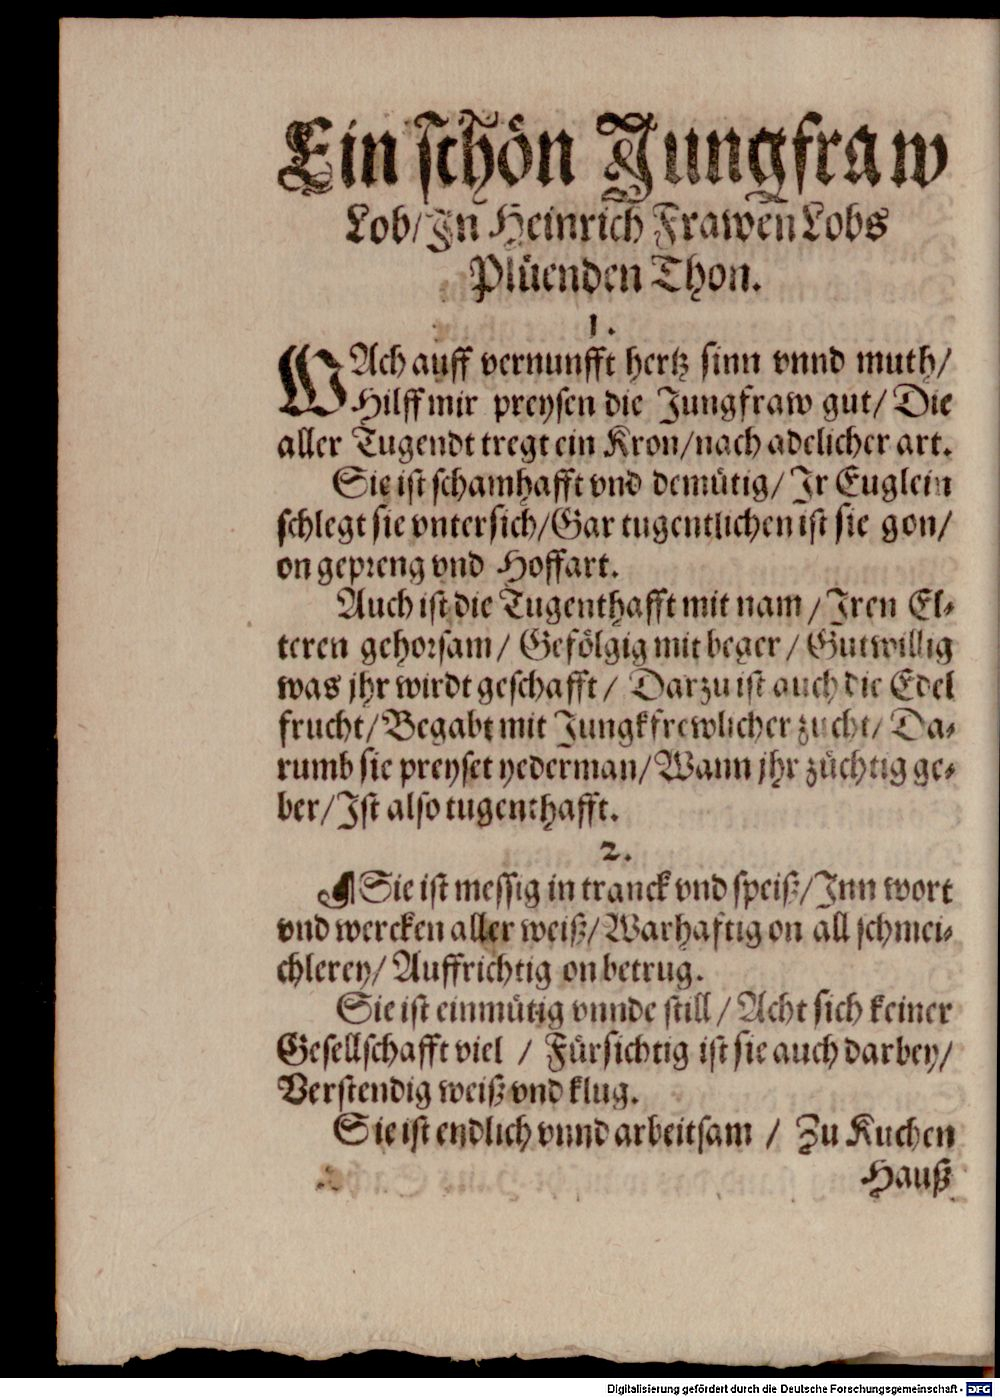 Ein schön Jungfraw
Lob/ In Heinrich Frawen Lobs
Plüenden Thon.
1.
WAch auff vernunfft hertz sinn vnnd muth/
Hilff mir preysen die Jungfraw gut/ Die
aller Tugendt tregt ein Kron/ nach adelicher art.
Sie ist schamhafft vnd demütig/ Ir Euglein
schlegt sie vntersich/ Gar tugentlichen ist sie gon/
on gepreng vnd Hoffart.
Auch ist die Tugenthafft mit nam/ Iren El-
teren gehorsam/ Gefölgig mit beger/ Gutwillig
was jhr wirdt geschafft/ Darzu ist auch die Edel
frucht/ Begabt mit Jungkfrewlicher zucht/ Da-
rumb sie preyset yederman/ Wann jhr züchtig ge-
ber/ Ist also tugenthafft.
2.
¶ Sie ist messig in tranck vnd speiß/ Inn wort
vnd wercken aller weiß/ Warhafftig on all schmei-
chlerey/ Auffrichtig on betrug.
Sie ist einmütig vnnde still/ Acht sich keiner
Gesellschafft viel/ Fürsichtig ist sie auch darbey/
Verstendig weiß vnd klug.
Sie ist endlich vnnd arbeitsam/ Zu Kuchen
Hauß
Digitalisierung gefördert durch die Deutsche Forschungsgemeinschaft - DFG